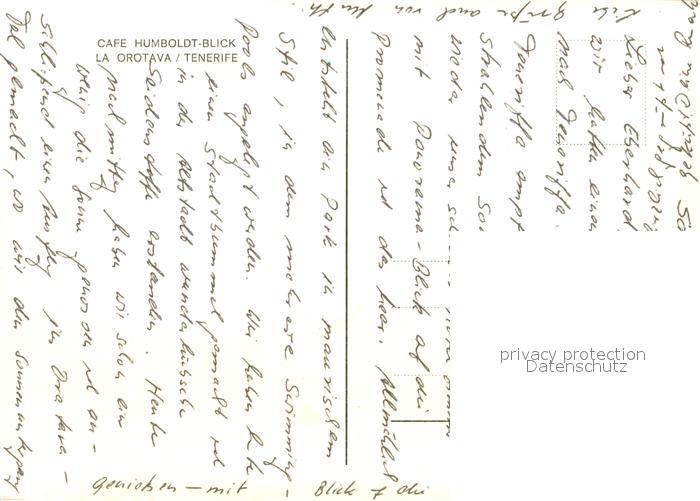 CAFE HUMBOLDT-BLICK
LA OROTAVA / TENERIFE
Lieber Eberhard
wir hatten einen
nach Teneriffa.
Teneriffa empf
strahlendem So
wieder unser
mit Panorama-Blick auf die
Promenade u d das Meer. Allmählich
entsteht ein Park in maurischem
Stil, in dem mehrere Swimming-
pools angelegt werden. Wir haben heute
einen Stadtbummel gemacht u d
in der Altstadt wunderhübsche
Seidenstoffe erstanden. Heute
nachmittag haben wir schon ein
wenig die Sonne genossen u d an-
schließend einen Ausflug ins Orotava-
Tal gemacht, wo wir den Sonnenuntergang
genießen - mit Blick
Liebe Grüße auch von
privacy protection
Datenschutz